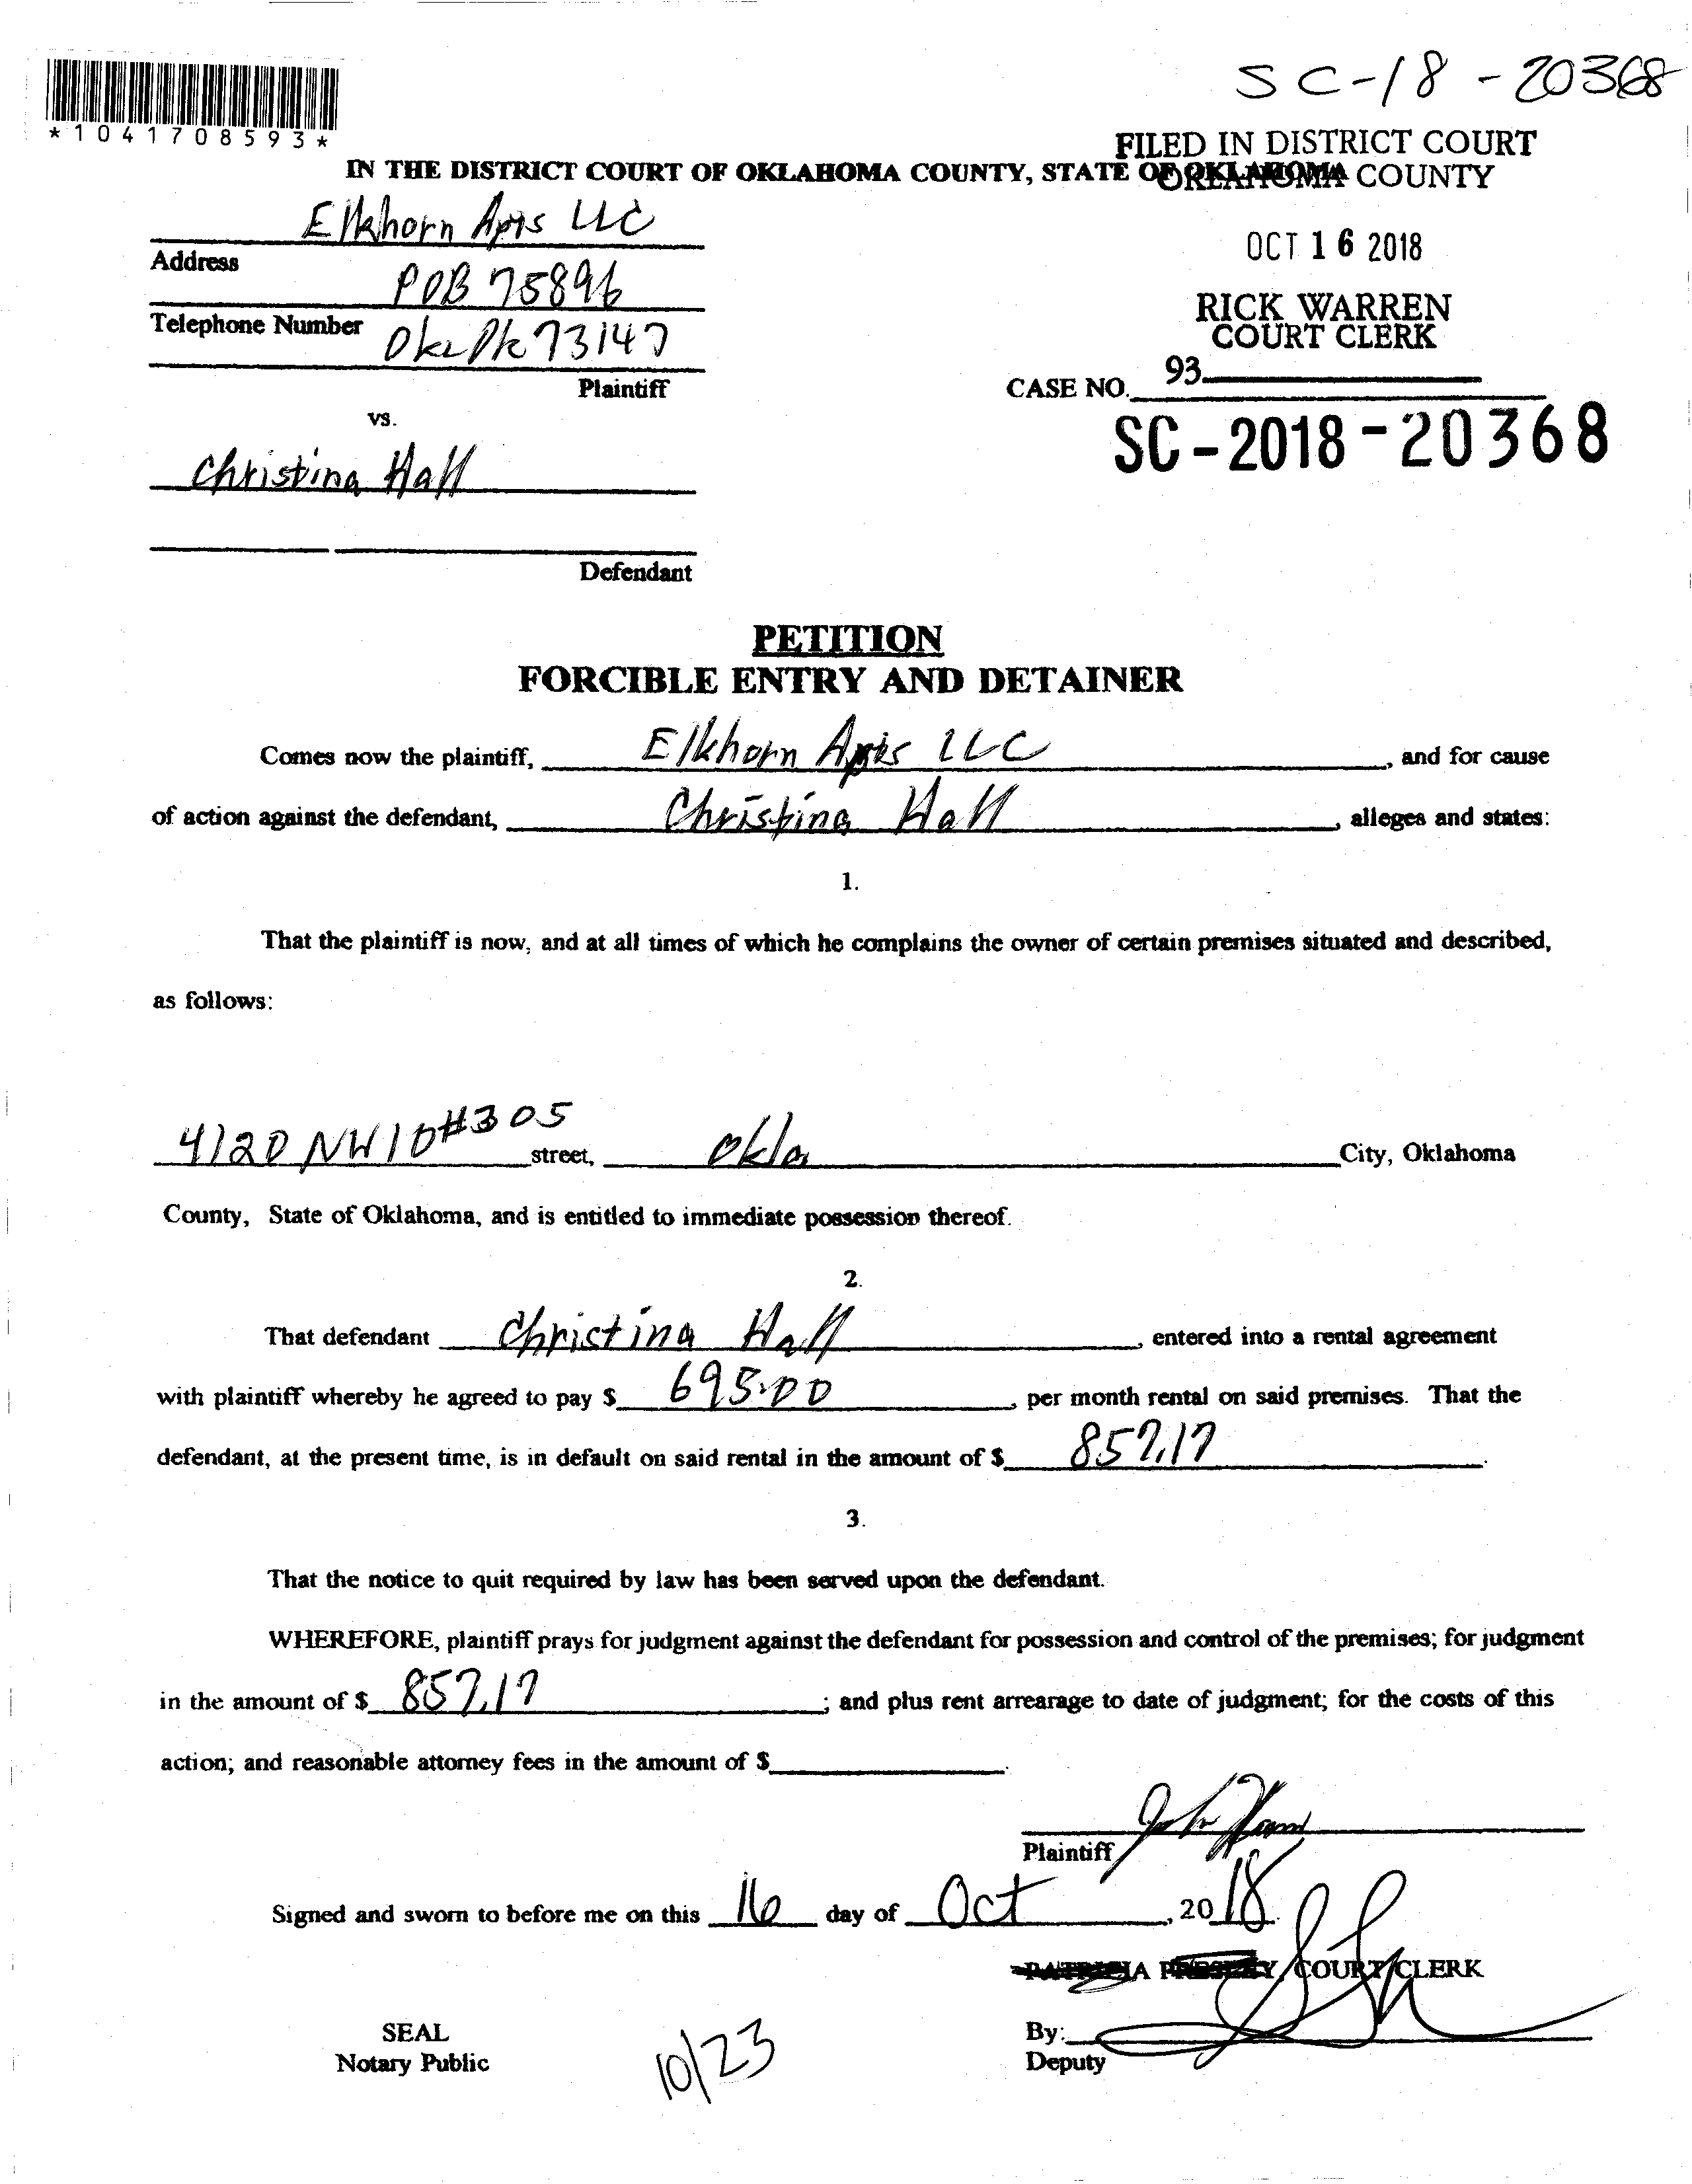 SC-18-20368
*1041708593*
FILED IN DISTRICT COURT
OKLAHOMA COUNTY
IN THE DISTRICT COURT OF OKLAHOMA COUNTY, STATE OF OKLAHOMA
Elkhorn Apts LLC
OCT 16 2018
Address
POB 75896
RICK WARREN
COURT CLERK
Telephone Number
73147
93
Plaintiff
CASE NO.
vs.
SC-2018-20368
Christina Hall
Defendant
PETITION
FORCIBLE ENTRY AND DETAINER
Comes now the plaintiff, Elkhorn Apts LLC, and for cause
of action against the defendant, Christina Hall, alleges and states:
1.
That the plaintiff is now, and at all times of which he complains the owner of certain premises situated and described,
as follows:
4120 NW 10 #305 street, Okla City, Oklahoma
County, State of Oklahoma, and is entitled to immediate possession thereof.
2.
That defendant Christina Hall, entered into a rental agreement
with plaintiff whereby he agreed to pay $ 695.00, per month rental on said premises. That the
defendant, at the present time, is in default on said rental in the amount of $ 857.17.
3.
That the notice to quit required by law has been served upon the defendant.
WHEREFORE, plaintiff prays for judgment against the defendant for possession and control of the premises; for judgment
in the amount of $ 857.17; and plus rent arrearage to date of judgment; for the costs of this
action; and reasonable attorney fees in the amount of $.
Plaintiff
Signed and sworn to before me on this 16 day of Oct, 2018.
COURT CLERK
SEAL
By:
Notary Public
Deputy
10/23